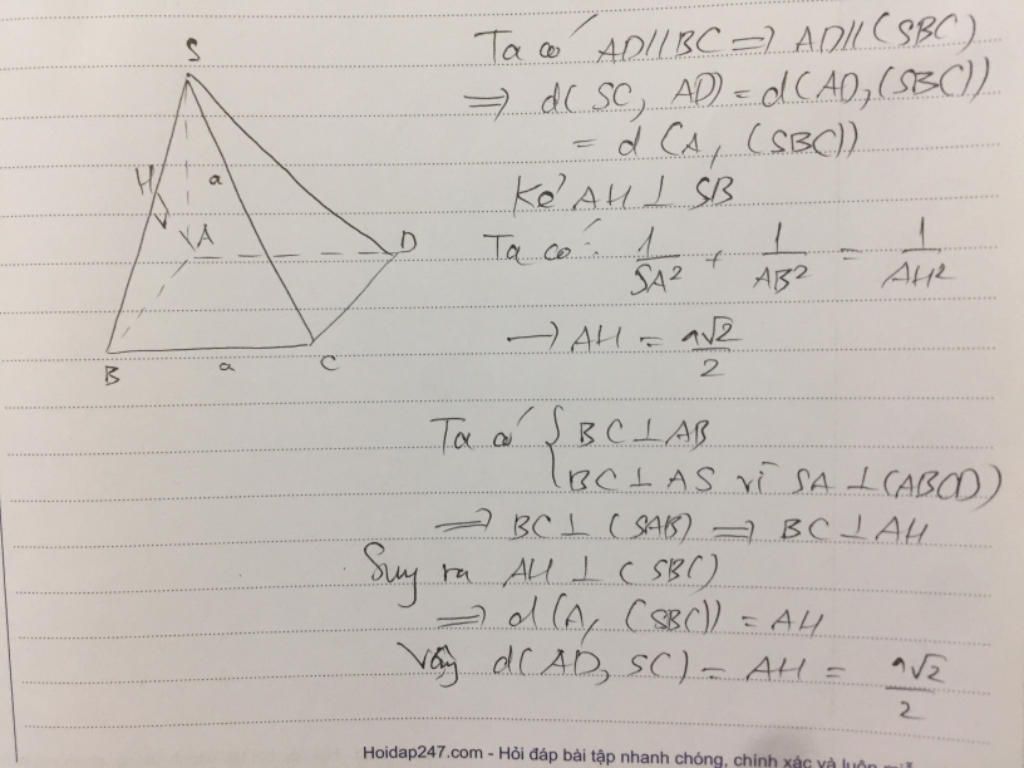 S
H
a
A
D
B
a
C
Ta có AD//BC => AD//(SBC)
=> d(SC, AD) = d(AD,(SBC))
= d(A, (SBC))
Kẻ AH ⊥ SB
Ta có: 1/SA² + 1/AB² = 1/AH²
→ AH = a√2/2
Ta có { BC ⊥ AB
BC ⊥ AS vì SA ⊥ (ABCD)
=> BC ⊥ (SAB) => BC ⊥ AH
Suy ra AH ⊥ (SBC)
=> d(A, (SBC)) = AH
Vậy d(AD, SC) = AH = a√2/2
Hoidap247.com - Hỏi đáp bài tập nhanh chóng, chính xác và luôn